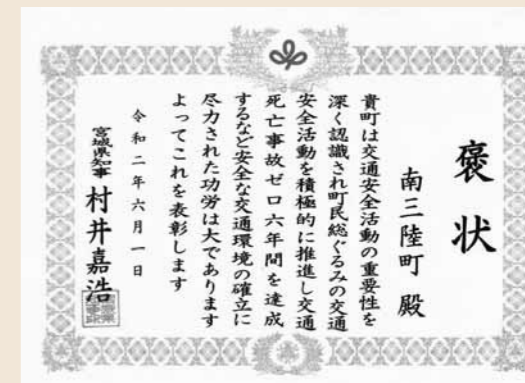 褒状
南三陸町 殿
貴町は交通安全活動の重要性を
深く認識され町民総ぐるみの交通
安全活動を積極的に推進し交通
死亡事故ゼロ六年間を達成
するなど安全な交通環境の確立に
尽力された功労は大であります
よってこれを表彰します
令和二年六月一日
宮城県知事 村井嘉浩